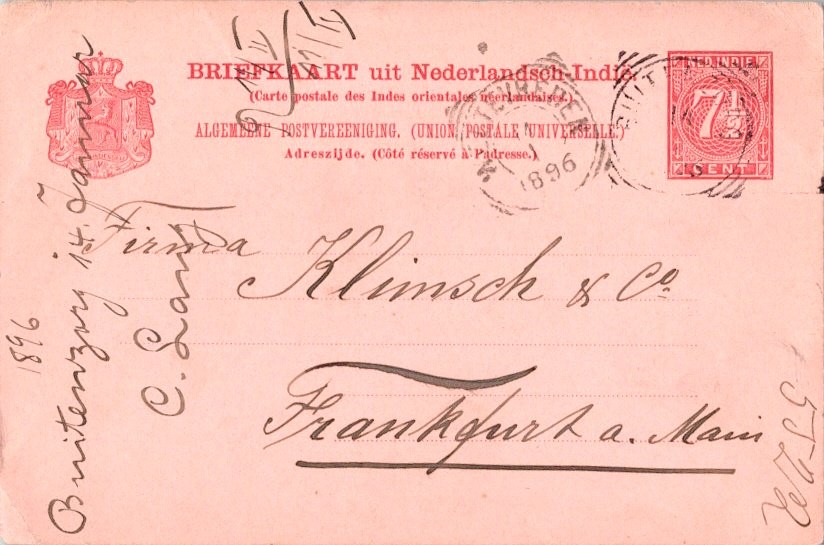 BRIEFKAART uit Nederlandsch-Indië.
(Carte postale des Indes orientales néerlandaises.)
ALGEMEENE POSTVEREENIGING. (UNION POSTALE UNIVERSELLE.)
Adreszijde. (Côté réservé à l'adresse.)
NED. INDIE
7½
CENT
WELTEVREDEN
1
1896
BUITENZ
Firma
Klimsch & Co.
Frankfurt a. Main
Buitenzorg 14. Januar
1896